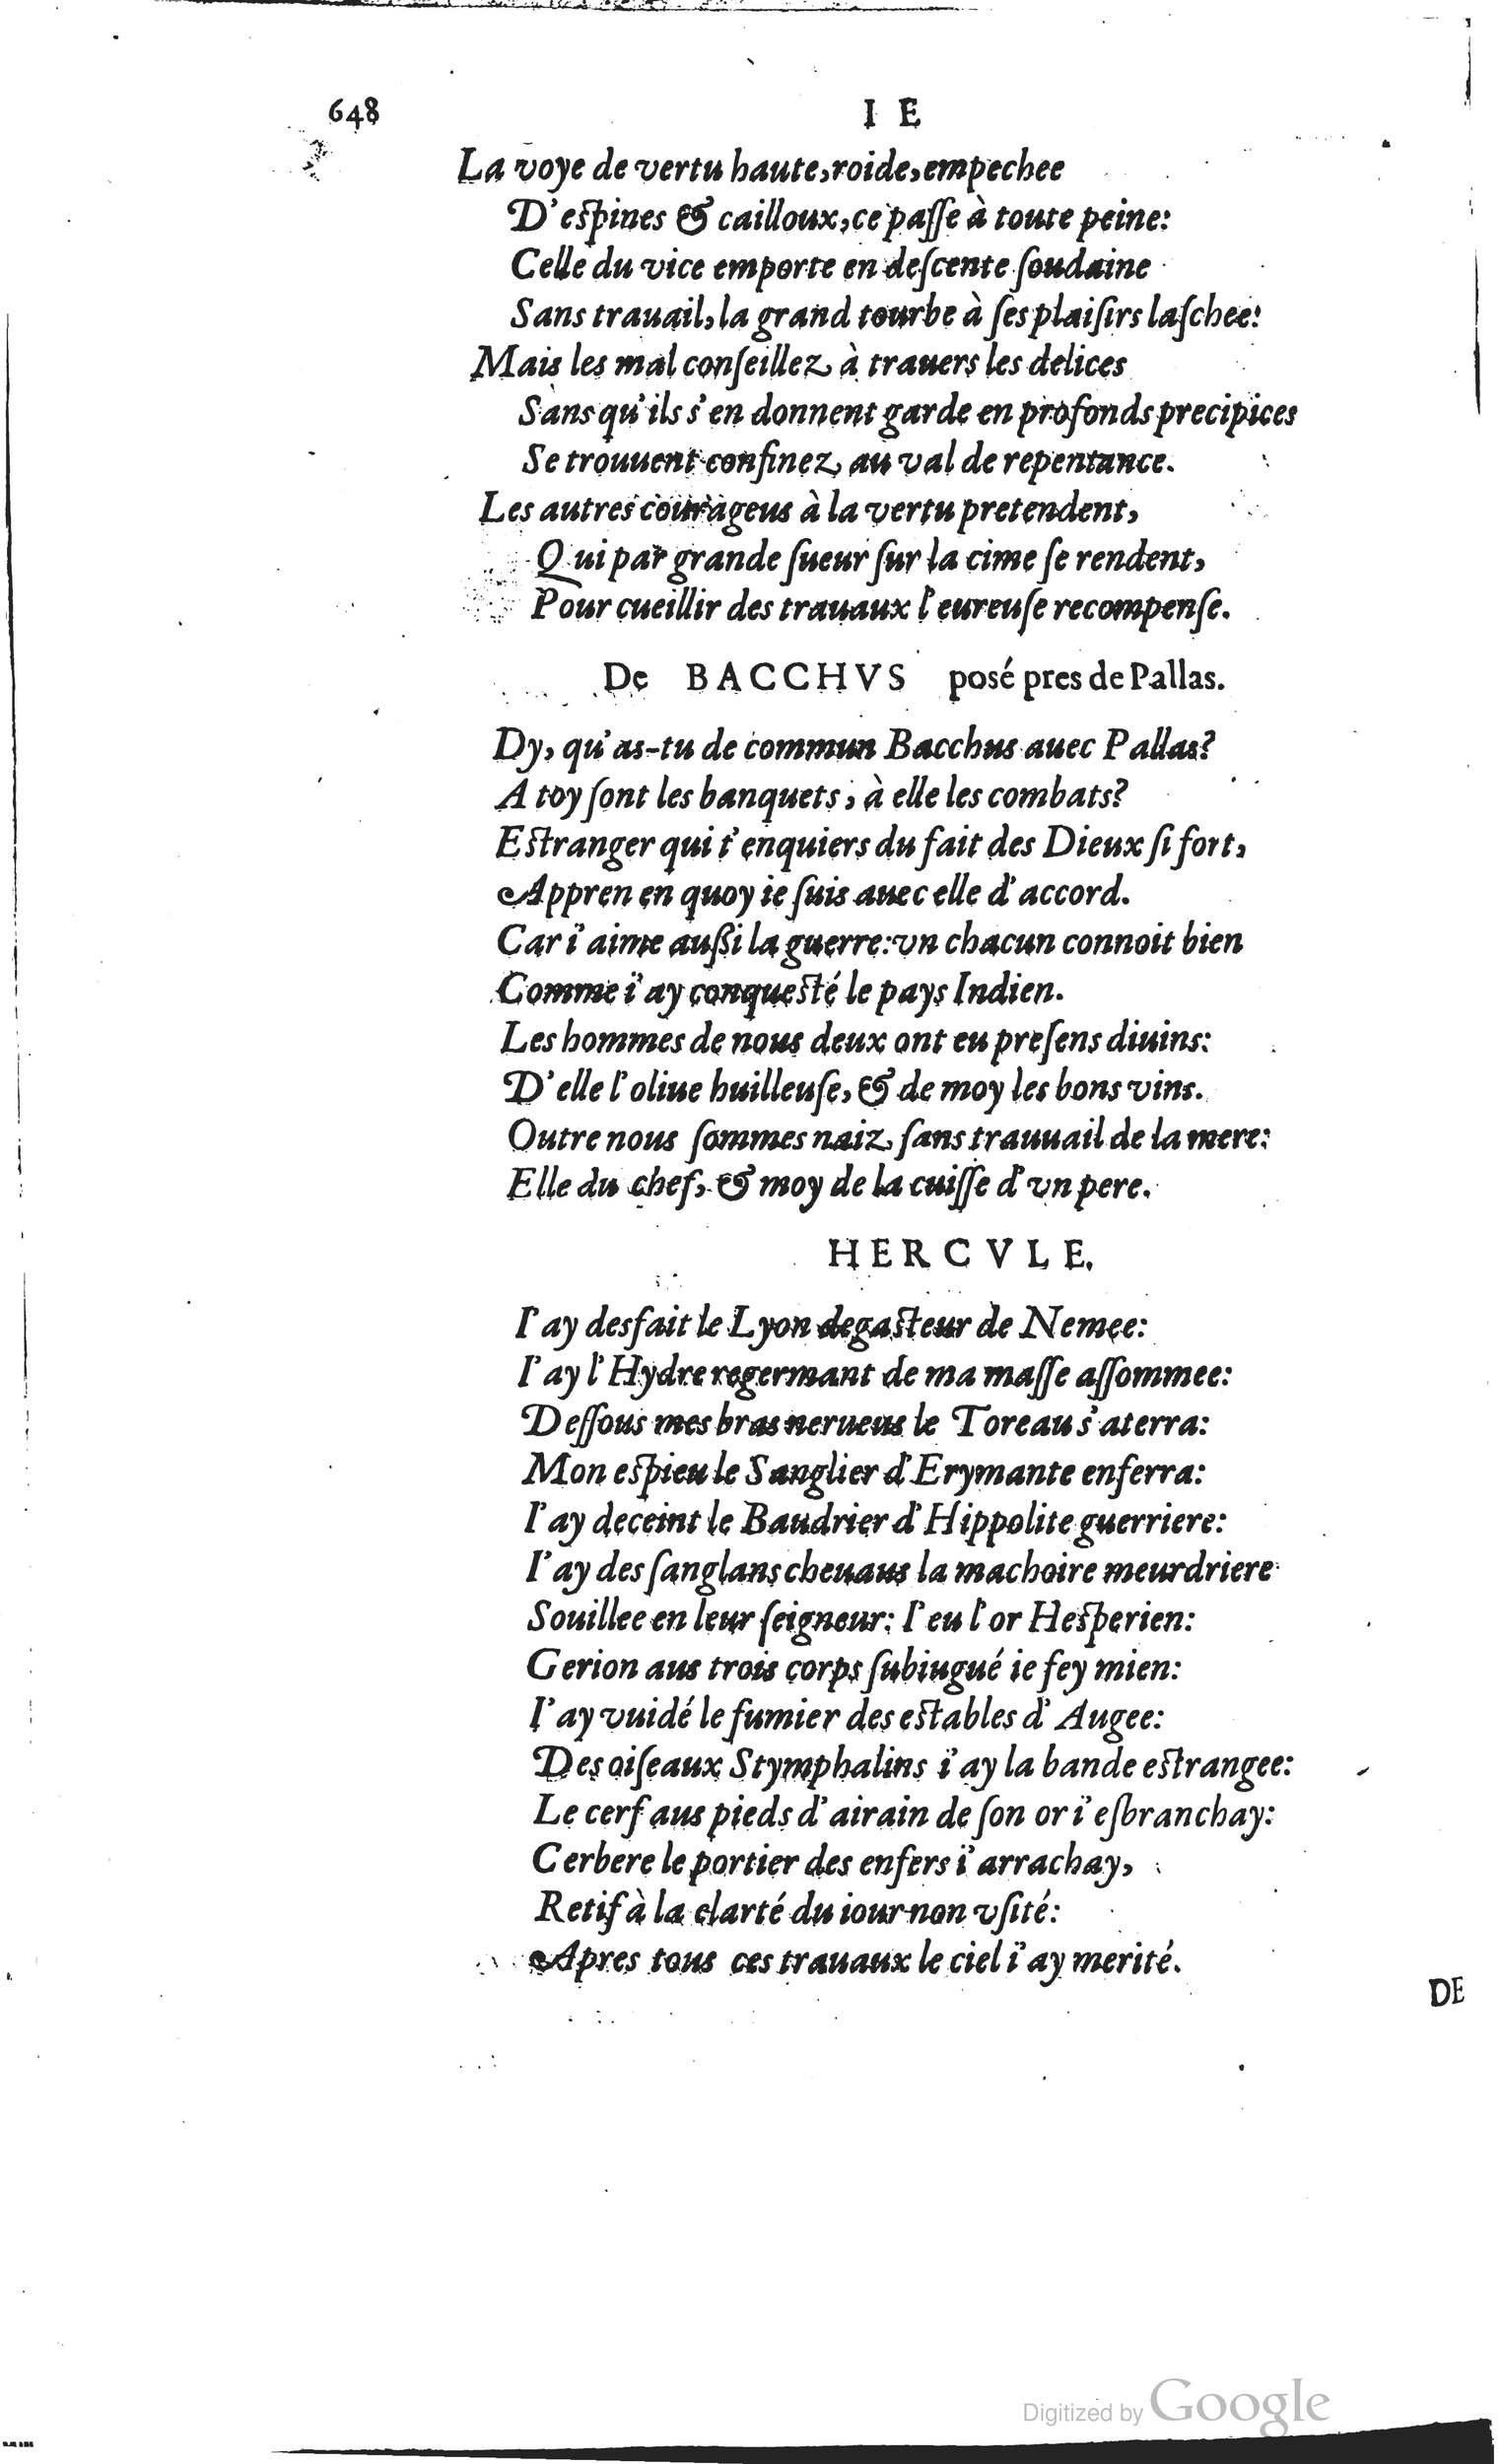 648 I E
La voye de vertu haute, roide, empechee
D'eſpines & cailloux, ce paſſe à toute peine:
Celle du vice emporte en deſcente ſoudaine
Sans trauail, la grand tourbe à ſes plaiſirs laſchee:
Mais les mal conſeillez à trauers les delices
Sans qu'ils s'en donnent garde en profonds precipices
Se trouuent confinez au val de repentance.
Les autres courageus à la vertu pretendent,
Qui par grande ſueur ſur la cime ſe rendent,
Pour cueillir des trauaux l'eureuſe recompenſe.
De BACCHVS posé pres de Pallas.
Dy, qu'as-tu de commun Bacchus auec Pallas?
A toy ſont les banquets, à elle les combats?
Eſtranger qui t'enquiers du fait des Dieux ſi fort,
Appren en quoy ie ſuis auec elle d'accord.
Car i'aime außi la guerre: vn chacun connoit bien
Comme i'ay conqueſté le pays Indien.
Les hommes de nous deux ont eu preſens diuins:
D'elle l'oliue huilleuſe, & de moy les bons vins.
Outre nous ſommes naiz ſans trauuail de la mere:
Elle du chef, & moy de la cuiſſe d'vn pere.
HERCVLE.
I'ay desfait le Lyon degaſteur de Nemee:
I'ay l'Hydre regermant de ma maſſe aſſommee:
Deſſous mes bras nerueus le Toreau s'aterra:
Mon eſpieu le Sanglier d'Erymante enferra:
I'ay deceint le Baudrier d'Hippolite guerriere:
I'ay des ſanglans cheuaus la machoire meurdriere
Souillee en leur ſeigneur: I'eu l'or Heſperien:
Gerion aus trois corps ſubiugué ie fey mien:
I'ay vuidé le fumier des eſtables d'Augee:
Des oiſeaux Stymphalins i'ay la bande eſtrangee:
Le cerf aus pieds d'airain de ſon or i'eſbranchay:
Cerbere le portier des enfers i'arrachay,
Retif à la clarté du iour non vſité:
Apres tous ces trauaux le ciel i'ay merité.
DE
Digitized by Google